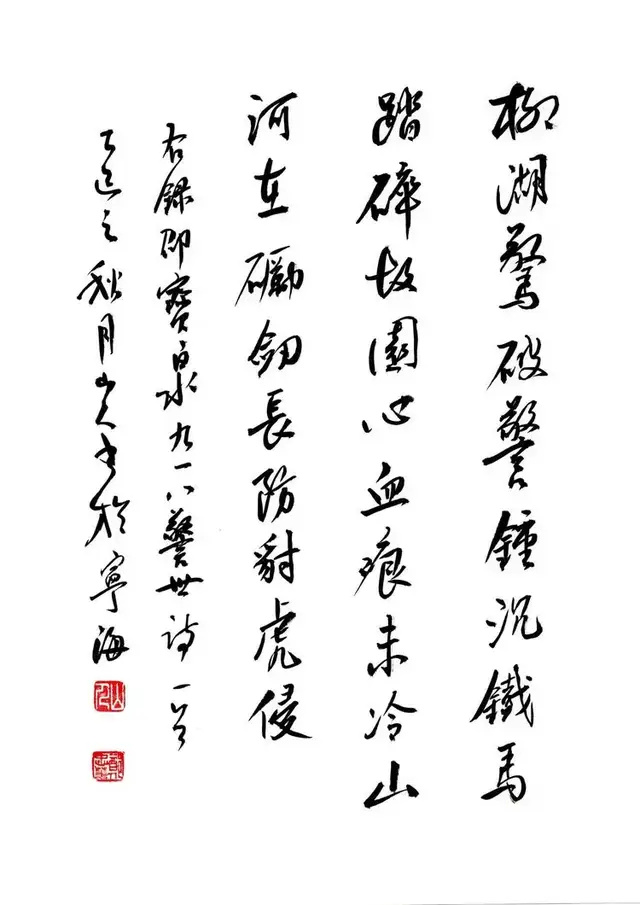 柳湖驚破警鍾沉鐵馬
踏碎故園心血痕未冷山
河在礪劍長防豺虎侵
右錄邵寶泉九一八警世诗一首
乙巳之秋月山人书於寧海